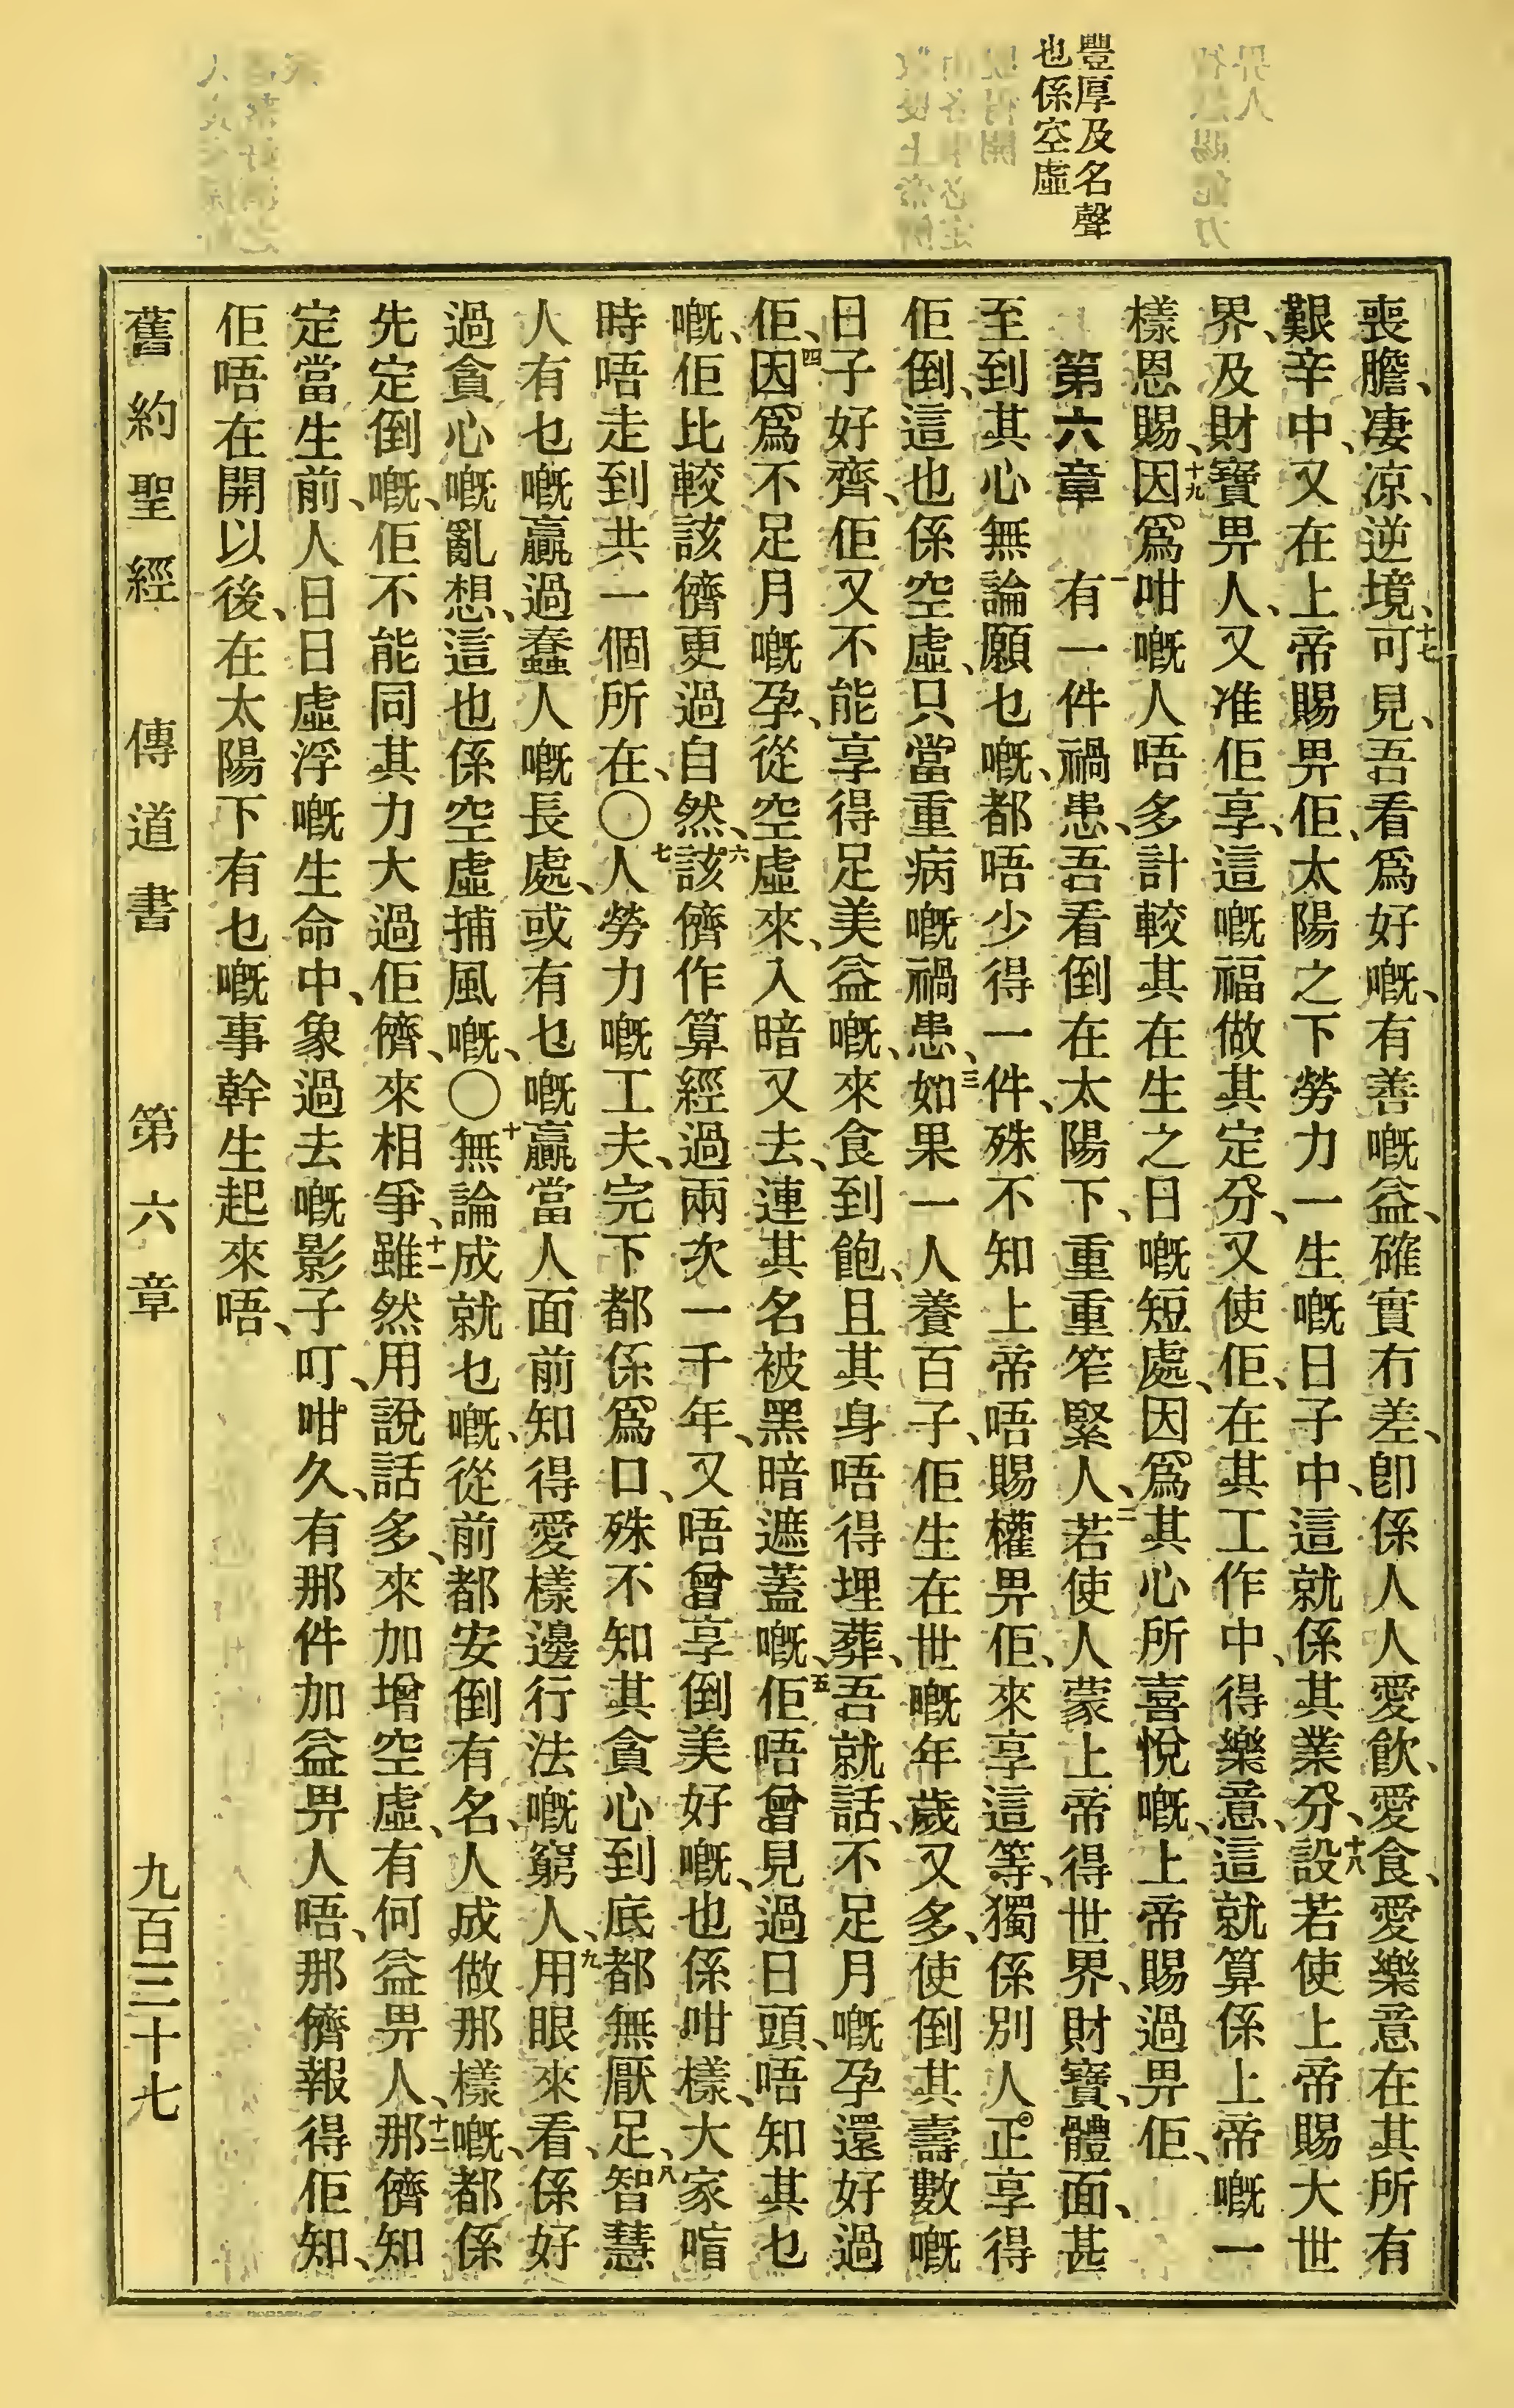 豐厚及名聲
也係空虛
喪膽、凄凉、逆境、十七可見、吾看爲好嘅、有善嘅益、確實冇差、卽係人人愛飲、愛食、愛樂意在其所有
艱辛中、又在上帝賜畀佢、太陽之下勞力一生嘅日子中、這就係其業分、十八設若使上帝賜大世
界、及財寶畀人、又准佢享、這嘅福做其定分、又使佢、在其工作中、得樂意、這就算係上帝嘅一
樣恩賜、十九因爲咁嘅人唔多計較其在生之日嘅短處、因爲其心所喜悅嘅、上帝賜過畀佢、
第六章 一有一件禍患、吾看倒在太陽下、重重笮緊人、二若使人蒙上帝得世界、財寶、體面、甚
至到其心無論願乜嘅、都唔少得一件、殊不知上帝唔賜權畀佢、來享這等、獨係別人正享得
佢倒、這也係空虛、只當重病嘅禍患、三如果一人養百子、佢生在世嘅年歲又多、使倒其壽數嘅
日子好齊、佢又不能享得足美益嘅、來食到飽、且其身唔得埋葬、吾就話、不足月嘅孕還好過
佢、四因爲不足月嘅孕、從空虛來、入暗又去、連其名被黑暗遮蓋嘅、五佢唔曾見過日頭、唔知其乜
嘅、佢比較該儕更過自然、六該儕作算經過兩次一千年、又唔曾享倒美好嘅、也係咁樣、大家喑
時唔走到共一個所在、〇七人勞力嘅工夫、完下都係爲口、殊不知其貪心到底都無厭足、八智慧
人有乜嘅贏過蠢人嘅長處、或有乜嘅贏當人面前知得愛樣邊行法嘅窮人、九用眼來看、係好
過貪心嘅亂想、這也係空虛捕風嘅、〇十無論成就乜嘅、從前都安倒有名、人成做那樣嘅、都係
先定倒嘅、佢不能同其力大過佢儕、來相爭、十一雖然用說話多、來加增空虛、有何益畀人、十二那儕知
定當生前、人日日虛浮嘅生命中、象過去嘅影子、叮咁久、有那件加益畀人唔、那儕報得佢知、
佢唔在開以後、在太陽下有乜嘅事幹生起來唔、
舊約聖經 傳道書 第六章 九百三十七